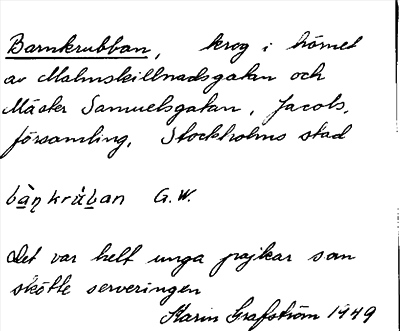 Barnkrubban, krog i hörnet
av Malmskillnadsgatan och
Mäster Samuelsgatan, Jacobs,
församling, Stockholms stad
bὰꞑkru̇ban G.W.
Det var helt unga pojkar som
skötte serveringen
Karin Grafström 1949